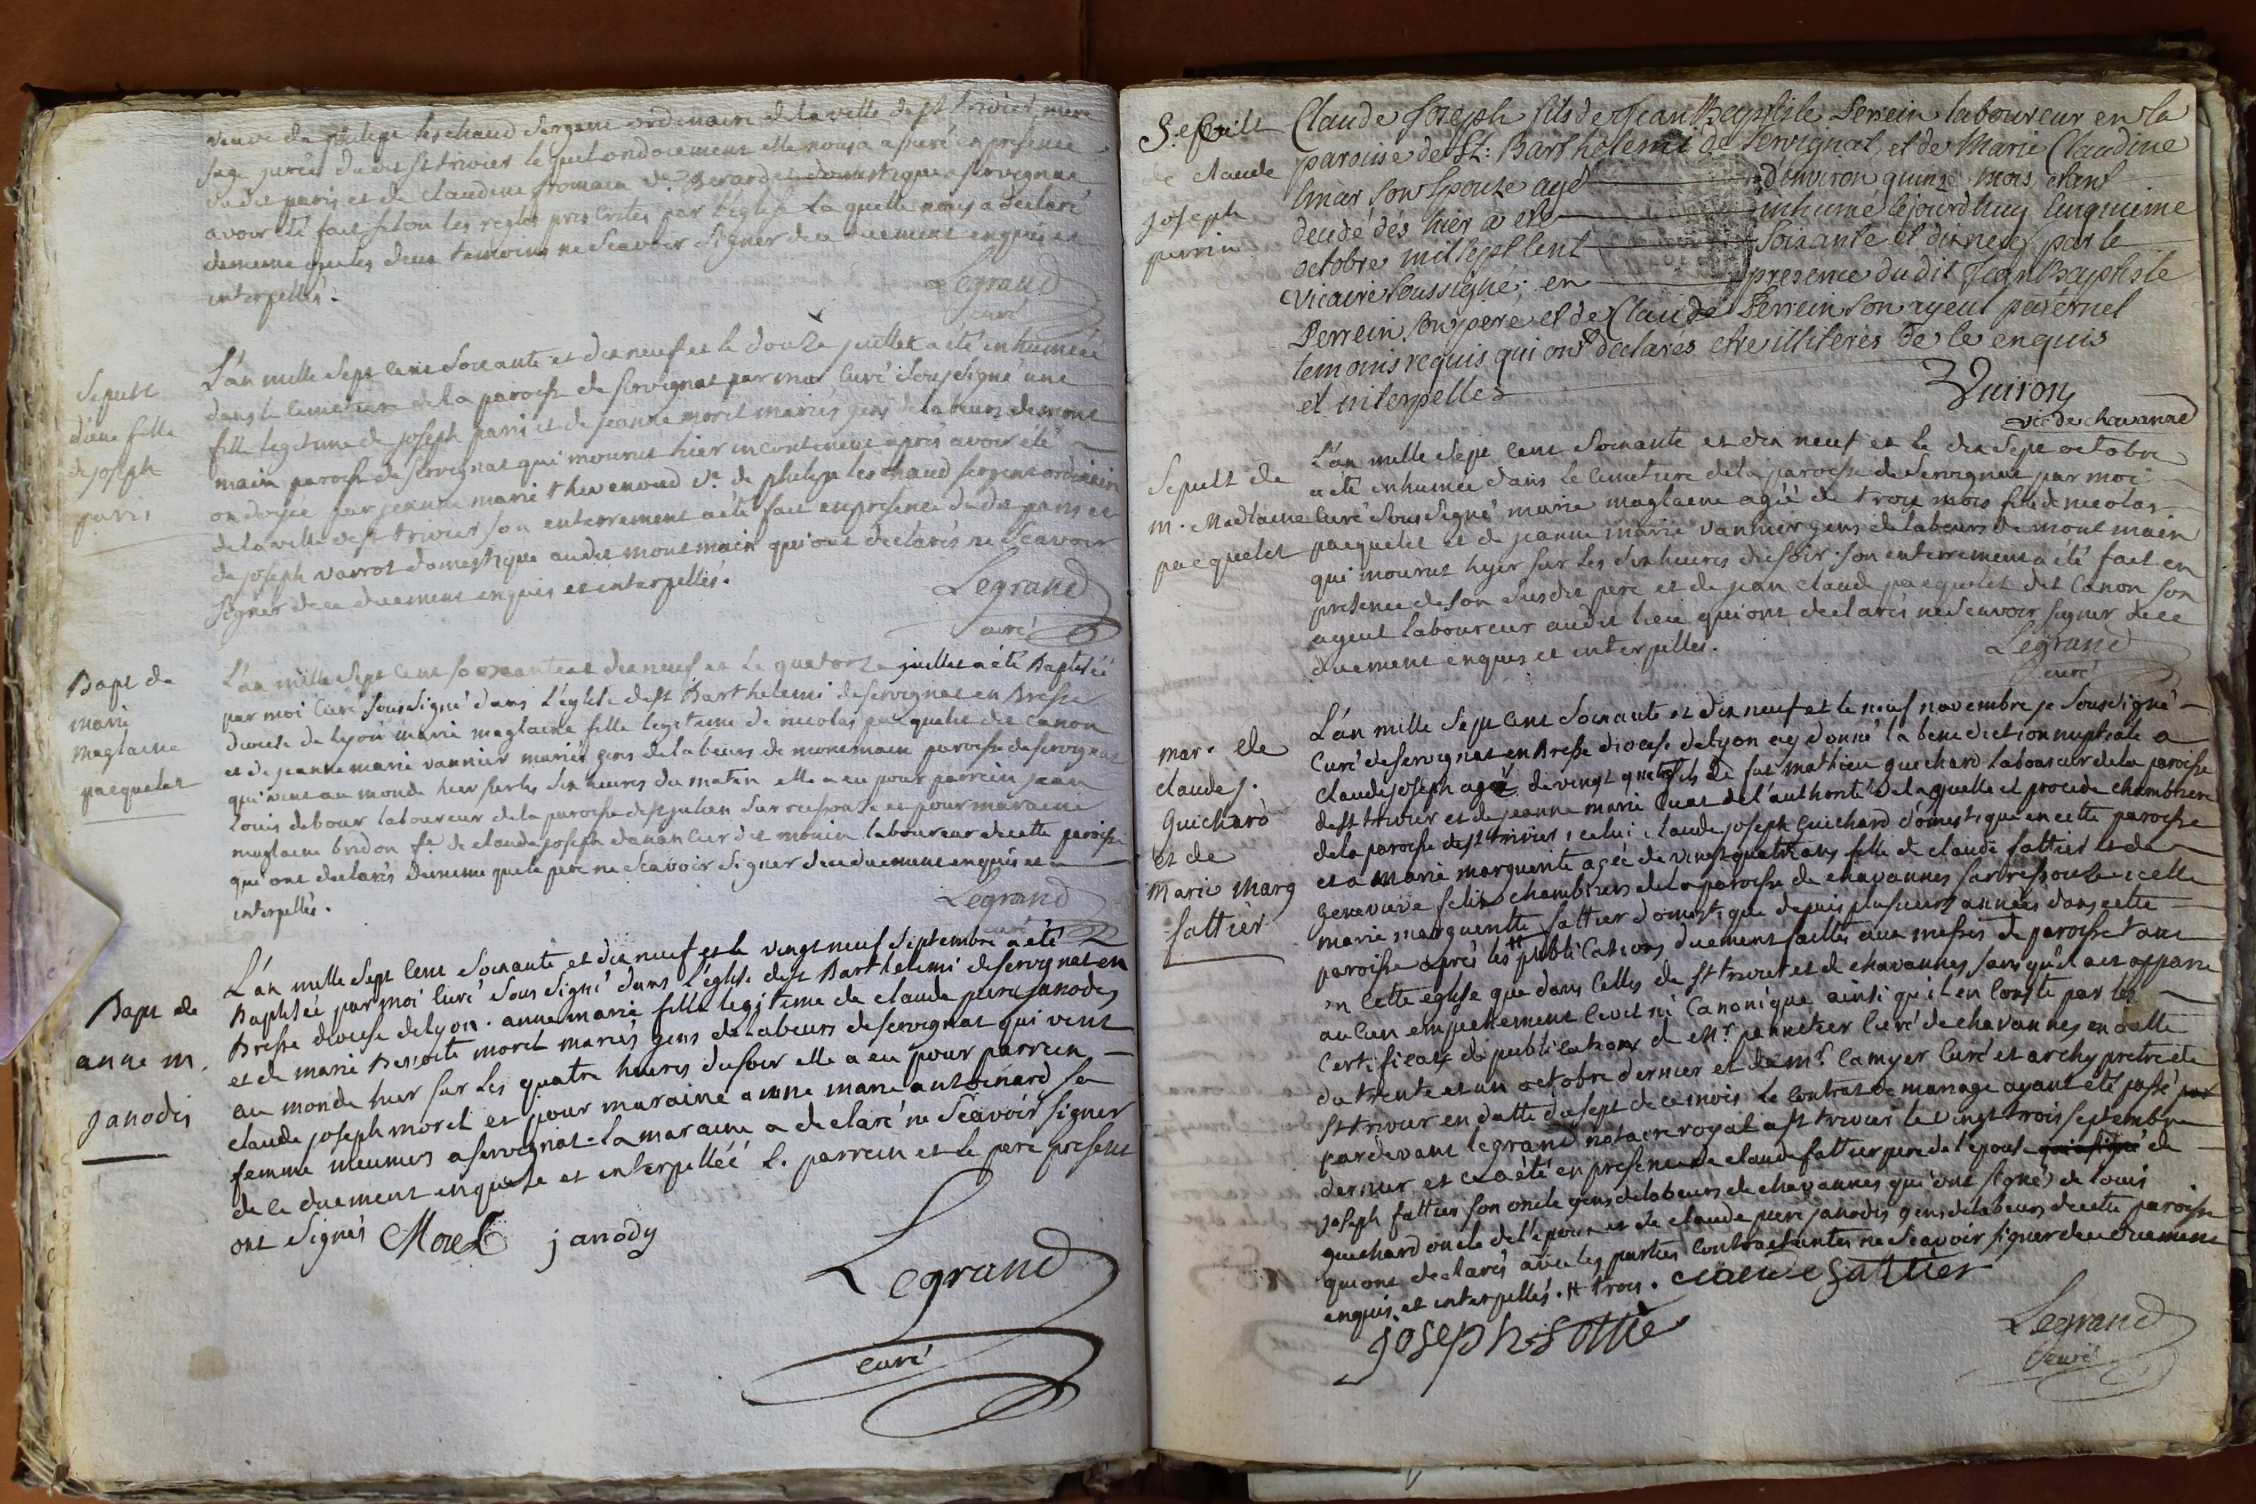 veuve de philipe leschaud sergent ordinaire de la ville de st trivier, mere
sage jurée dudit st trivier le quel ondoiement elle nous a assuré en presence
dudit paris et de claudine domestique a servignat
avoir été fait selon les regles prescrites par l'eglise la quelle nous a declaré
de meme que les deux temoins ne scavoir signer de ce duement enquis et
interpellés.
Legrand
curé
Sepult
d'une fille
de joseph
paris
L'an mille sept cent soixante et dix neuf et le douze juillet a été inhumée
dans le cimetiere de la paroisse de servignat par moi curé soussigné une
fille legitime de joseph paris et de jeanne morel mariés gens de labeurs de mont
main paroisse de servignat qui mourut hier incontinent après avoir été
ondoyée par jeanne marie thevenoud ve. de philipe leschaud sergent ordinaire
de la ville de st trivier son enterrement a été fait en presence dudit paris et
de joseph varrot domestique audit montmain qui ont declarés ne scavoir
signer de ce duement enquis et interpellés.
Legrand
curé
Bapt de
marie
maglaine
pacquelet
L'an mille sept cent soixante et dix neuf et le quatorze juillet a été Baptisée
par moi curé soussigné dans l'eglise de st Barthelemi de servignat en Bresse
diocese de lyon marie maglaine fille legitime de nicolas pacquelet dit canon
et de jeanne marie vannier mariés gens de labeurs de montmain paroisse de servignat
qui vint au monde hier sur les dix heures du matin elle a eu pour parrein jean
louis debour laboureur de la paroisse de st julien sur ressouse et pour maraine
maglaine bridon fe. de claude joseph danancier dit monin laboureur de cette paroisse
qui ont declarés de meme que le pere ne scavoir signer de ce duement enquis et
interpellés.
Legrand
curé
Bapt de
anne m.
janodis
L'an mille sept cent soixante et dix neuf et le vingt neuf septembre a été
Baptisée par moi curé sous signé dans l'eglise de st Barthelemi de servignat en
Bresse diocese de lyon. anne marie fille legitime de claude pierre janodes
et de marie Benoite morel mariés gens de labeurs de servignat qui vint
au monde hier sur les quatre heures du soir elle a eu pour parrein
claude joseph morel et pour maraine anne marie antoinard sa
femme meuniers a servignat. la maraine a declaré ne scavoir signer
de ce duement enquise et interpellée l. parrein et le pere present
ont signés Morel janody
Legrand
curé
Claude
Joseph
perrin
Claude Joseph fils de Jean Baptiste Perrein laboureur en la
paroisse de St: Barthelemi de Servignat, et de Marie Claudine
son epouze agé d'environ quinze mois, etant
decedé dès hier a eté inhumé cejourd'huy cinquieme
octobre mil sept cent soixante et dix neuf par le
vicaire soussigné: en presence du dit Jean Baptiste
Perrein son pere, et de Claude Perrein son ayeul paternel
temoins requis qui ont declarés etre illiteres de ce enquis
et interpellés
Vuiron
vic de chavannes
Sepult de
m. Madlaine
pacquelet
L'an mille sept cent soixante et dix neuf et le dix sept octobre
a été inhumée dans le cimetiere de la paroisse de servignat par moi
curé sous signé marie maglaine agée de trois mois fille de nicolas
pacquelet et de jeanne marie vannier gens de labeurs de mont main
qui mourut hyer sur les dix heures du soir. son enterrement a été fait en
presence de son susdit pere et de jean claude pacquelet dit Canon son
ayeul laboureur audit lieu qui ont declarés ne scavoir signer de ce
duement enquis et interpellés.
Legrand
curé
mar. de
claude j.
Guichard
et de
Marie Marg
fattier
L'an mille sept cent soixante et dix neuf et le neuf novembre je soussigné
curé de servignat en Bresse diocese de lyon ay donné la benediction nuptiale a
claude joseph agé de vingt quatre fils de fut mathieu guichard laboureur de la paroisse
de st trivier et de jeanne marie de l'authorité de laquelle il procede chambriere
de la paroisse de st trivier, celui claude joseph Guichard domestique en cette paroisse
et a marie marguerite agée de vingt quatre ans fille de claude fattier et de
genevieve felix chambriers de la paroisse de chavannes sur ressouse icelle
marie marguerite fattier domestique depuis plusieurs années dans cette
paroisse après les # publications duement faittes aux messes de paroisse tant
en cette eglise que dans celles de st trivier et de chavannes sans qu'il ait apparu
aucun empechement civil ni canonique ainsi qu'il en conste par les
certificats de publications de Mr. pannetier curé de chavannes en datte
du trente et un octobre dernier et de mr. camyer curé et archypretre de
st trivier en datte du sept de ce mois le contrat de mariage ayant été passé par
pardevant legrand notaire royal a st trivier le vingt trois septembre
dernier et ce a été en presence de claude fattier pere de l'epouse qui a signé de
joseph fattier son oncle gens de labeurs de chavannes qui ont signé, de louis
guichard oncle de l'epoux et de claude piere janodis gens de labeurs de cette paroisse
qui ont declarés avec les parties contractantes ne scavoir signer de ce duement
enquis et interpellés. # trois. claude fattier
joseph fattie
Legrand
curé